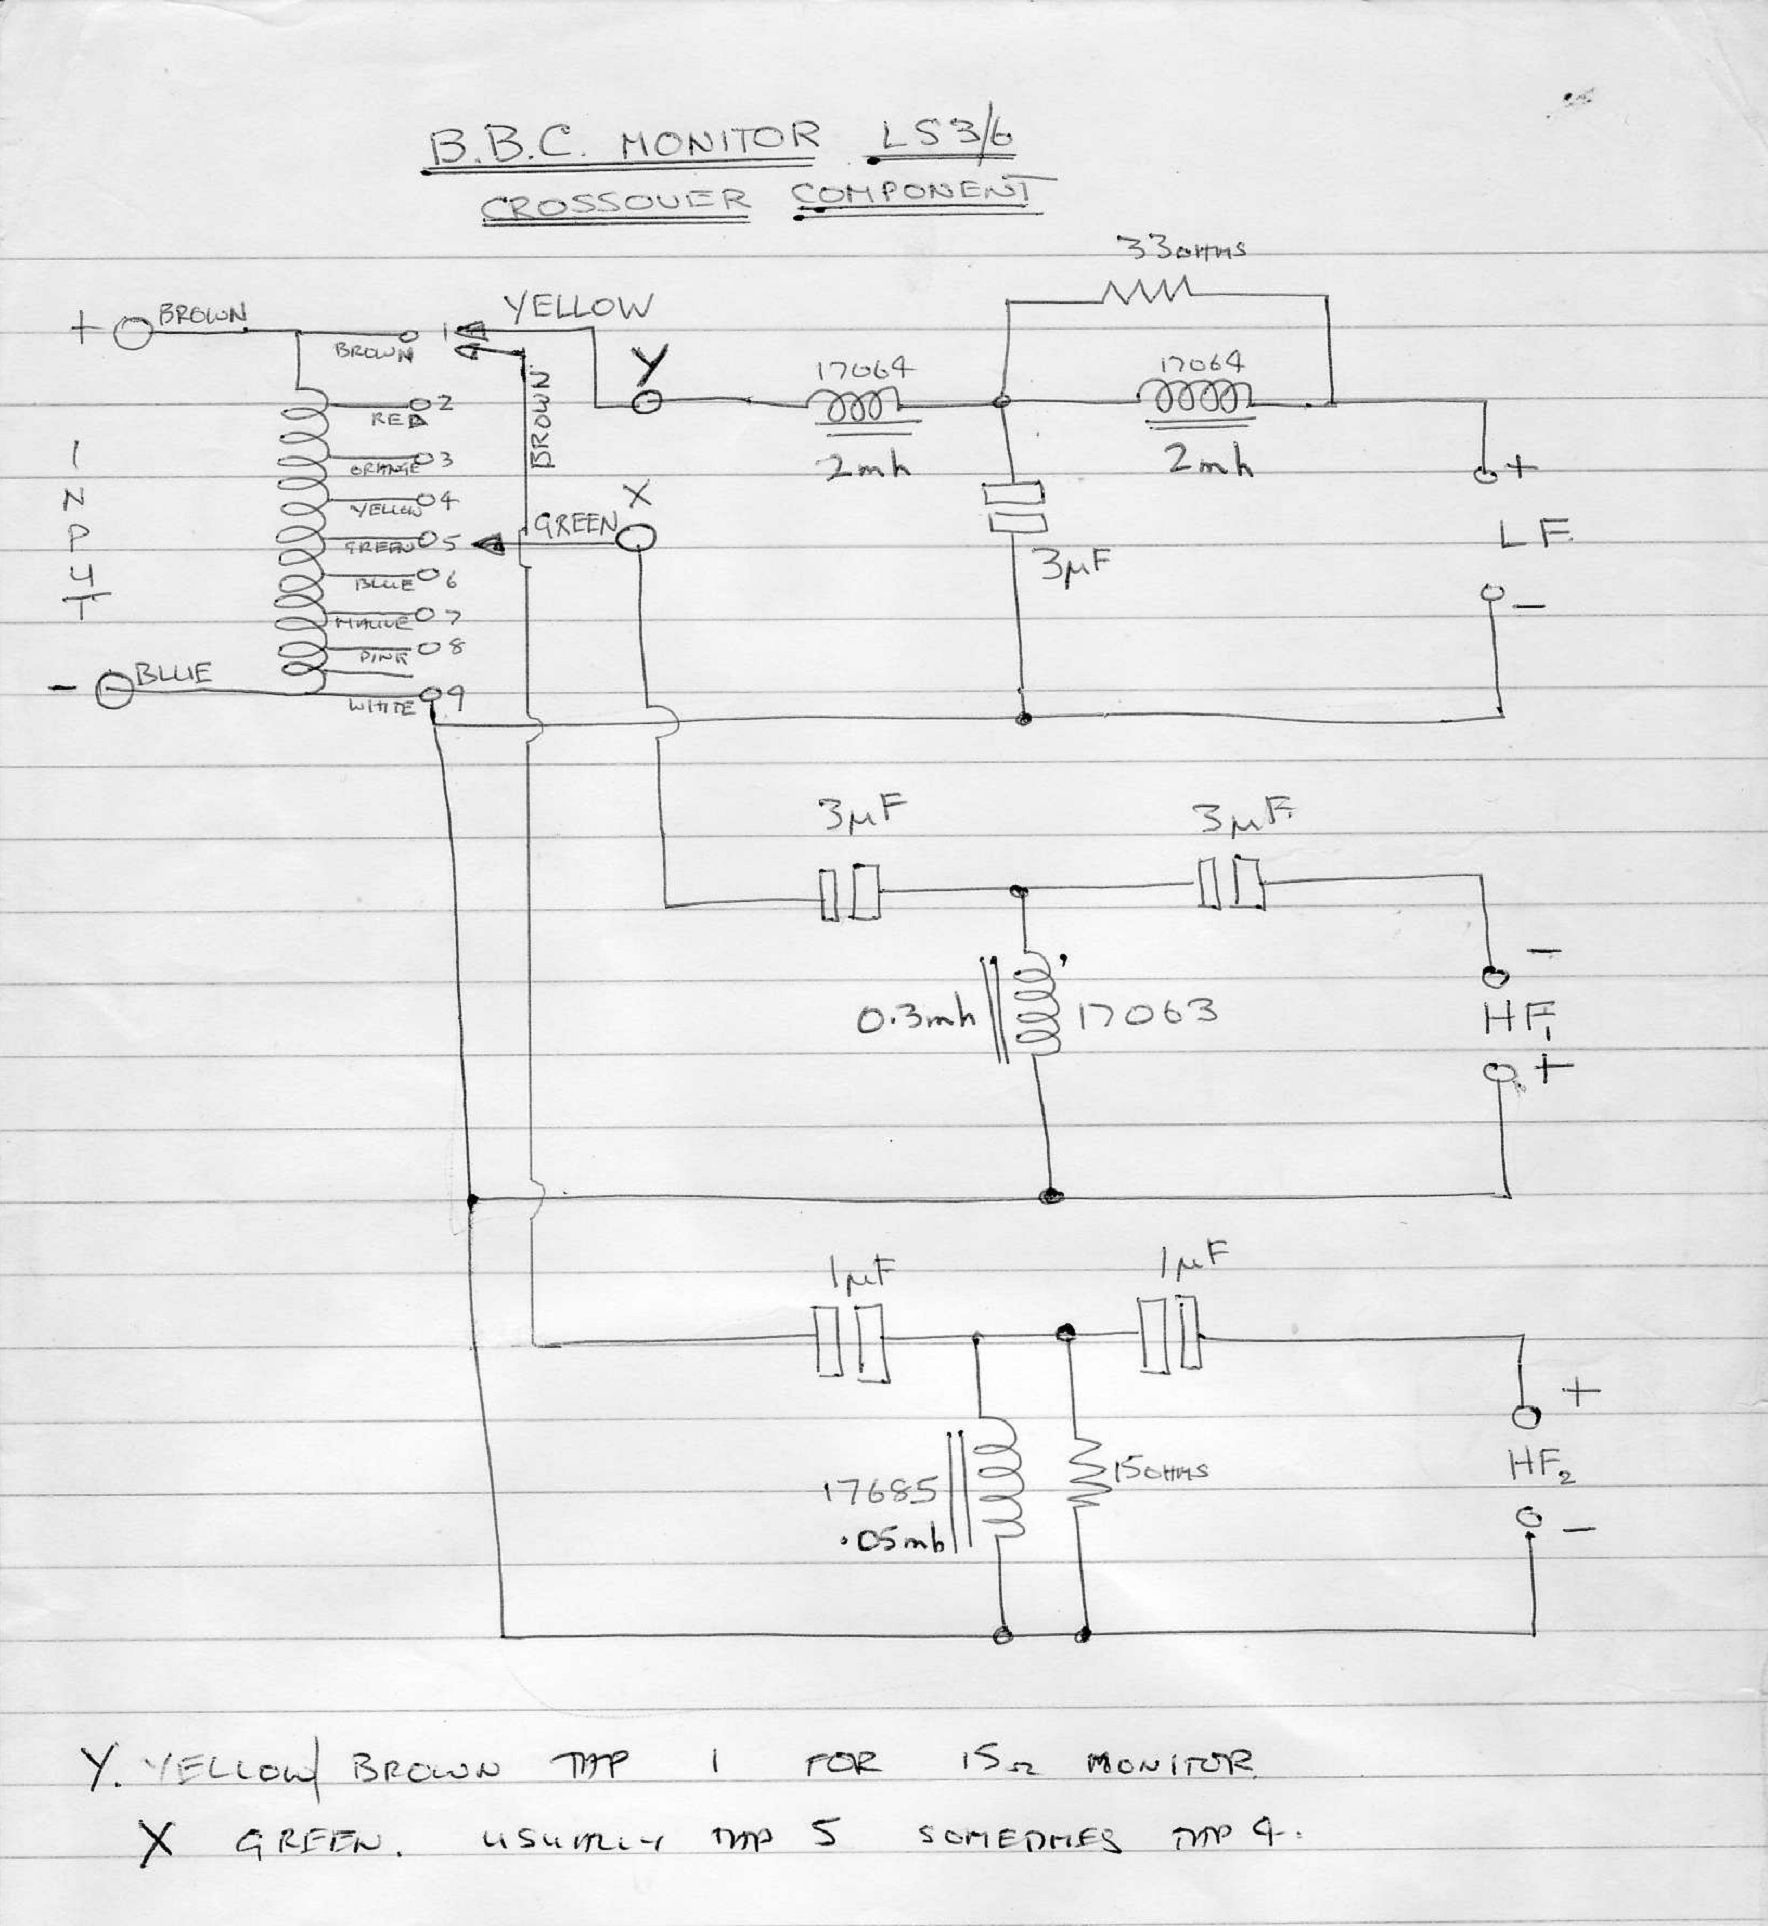 B.B.C. MONITOR LS3/6
CROSSOVER COMPONENT
33OHMS
+ BROWN
BROWN
1
YELLOW
Y
17064
17064
2mh
2mh
RED 2
ORANGE 3
YELLOW 4
GREEN 5
BLUE 6
MAUVE 7
PINK 8
WHITE 9
INPUT
- BLUE
BROWN
GREEN
X
3µF
+
LF
-
3µF
3µF
0.3mh
17063
-
HF1
+
1µF
1µF
17685
.05mh
15OHMS
+
HF2
-
Y. YELLOW/BROWN TAP 1 FOR 15Ω MONITOR
X GREEN. USUALLY TAP 5 SOMETIMES TAP 4.